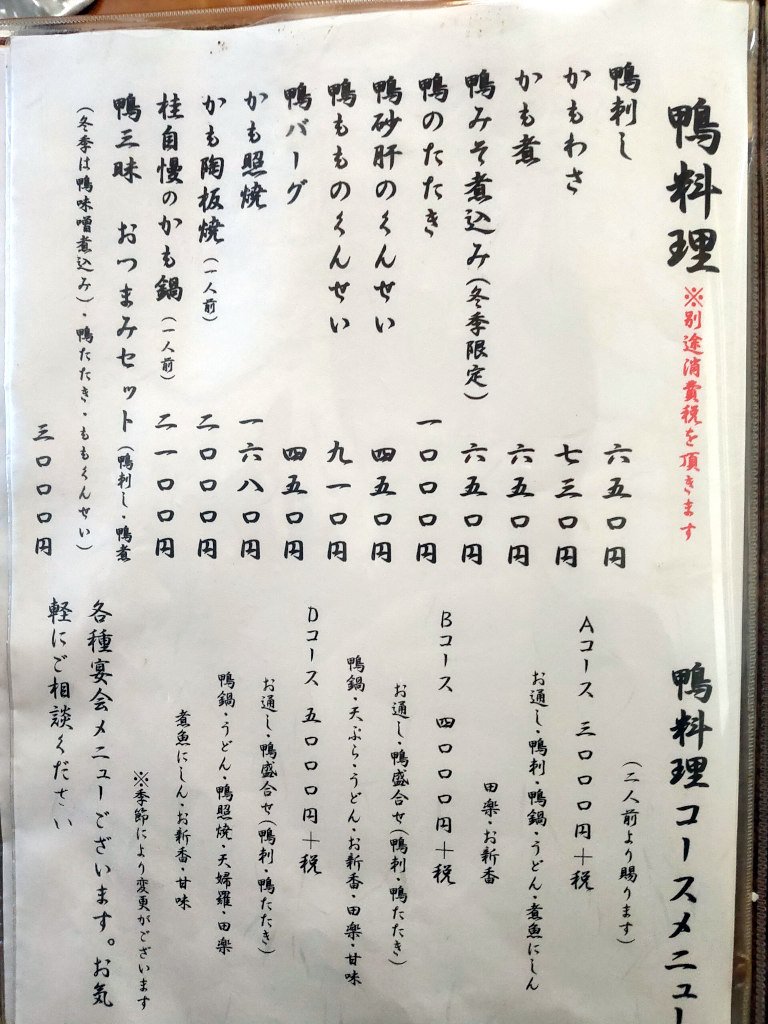 鴨料理 ※別途消費税を頂きます
鴨刺し 六五〇円
かもわさ 七三〇円
かも煮 六五〇円
鴨みそ煮込み(冬季限定) 六五〇円
鴨のたたき 一〇〇〇円
鴨砂肝のくんせい 四五〇円
鴨もものくんせい 九一〇円
鴨バーグ 四五〇円
かも照焼 一六八〇円
かも陶板焼(一人前) 二〇〇〇円
桂自慢のかも鍋(一人前) 二一〇〇円
鴨三昧 おつまみセット(鴨刺し・鴨煮
(冬季は鴨味噌煮込み)・鴨たたき・ももくんせい)
三〇〇〇円
鴨料理コースメニュー
(二人前より賜ります)
Aコース 三〇〇〇円＋税
お通し・鴨刺・鴨鍋・うどん・煮魚にしん
田楽・お新香
Bコース 四〇〇〇円＋税
お通し・鴨盛合せ(鴨刺・鴨たたき)
鴨鍋・天ぷら・うどん・お新香・田楽・甘味
Dコース 五〇〇〇円＋税
お通し・鴨盛合せ(鴨刺・鴨たたき)
鴨鍋・うどん・鴨照焼・天婦羅・田楽
煮魚にしん・お新香・甘味
※季節により変更がございます
各種宴会メニューございます。お気
軽にご相談ください